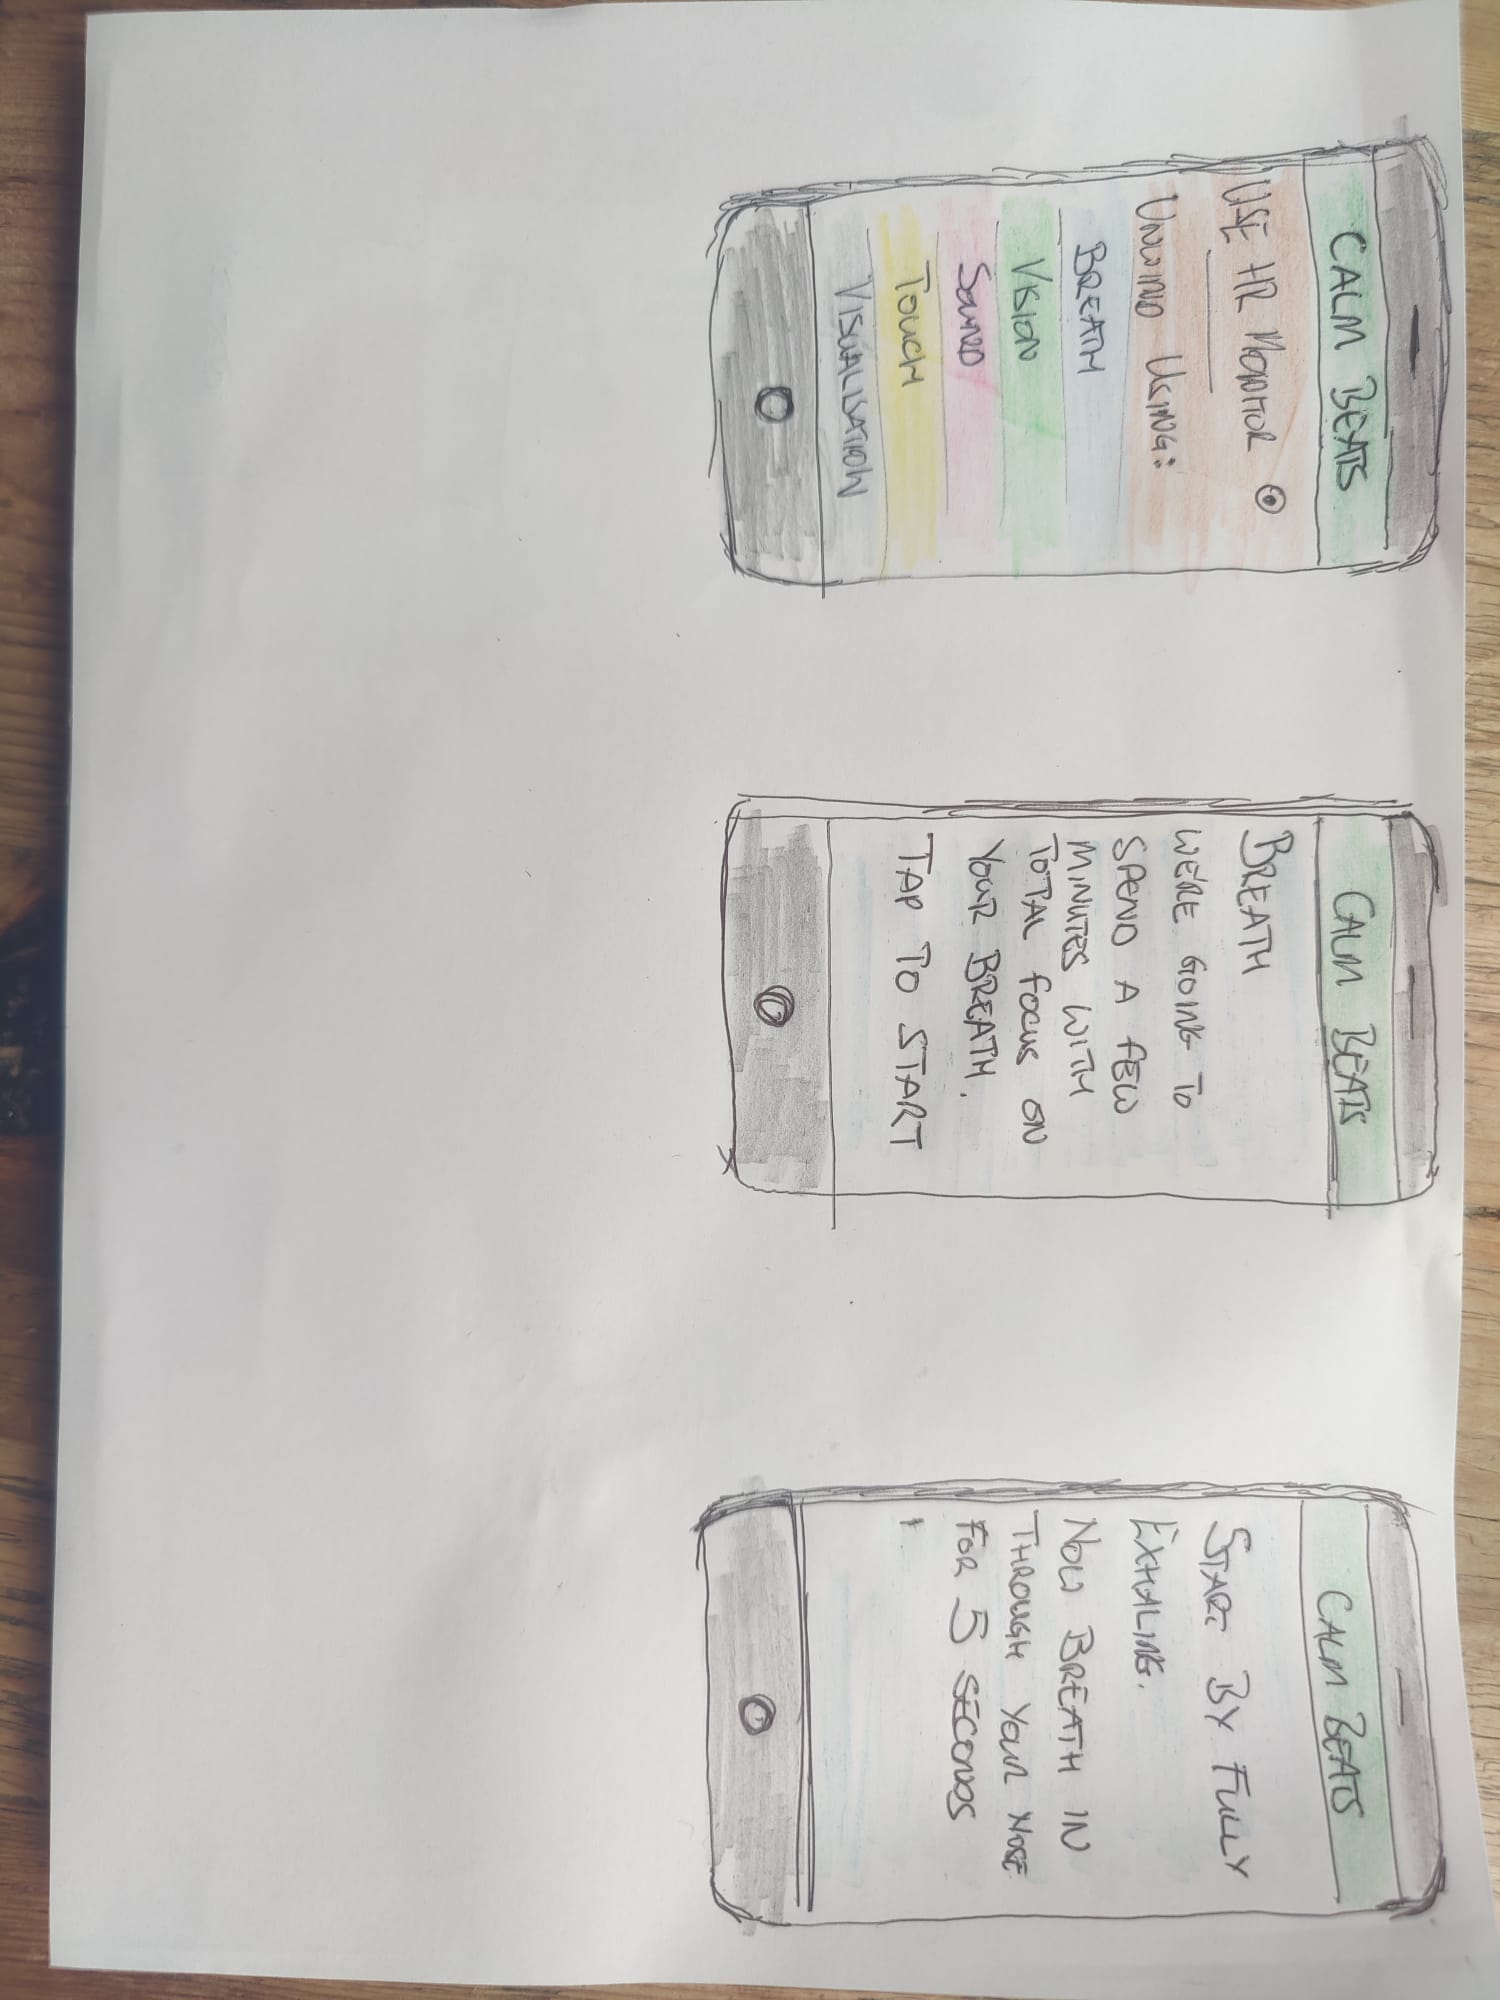 CALM BEATS
USE HR MONITOR
UNWIND USING:
BREATH
VISION
SOUND
TOUCH
VISUALISATION
CALM BEATS
BREATH
WE'RE GOING TO
SPEND A FEW
MINUTES WITH
TOTAL FOCUS ON
YOUR BREATH.
TAP TO START
CALM BEATS
START BY FULLY
EXHALING.
NOW BREATH IN
THROUGH YOUR NOSE
FOR 5 SECONDS